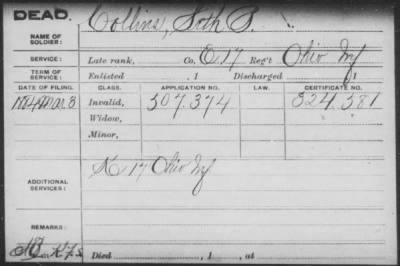 DEAD.
Collins, Seth B.
NAME OF SOLDIER:
SERVICE: Late rank, Co. E 17 Reg't Ohio Inf
TERM OF SERVICE: Enlisted , 1 Discharged , 1
DATE OF FILING. CLASS. APPLICATION NO. LAW. CERTIFICATE NO.
1884 Mar 3 Invalid, 507.374 324.581
Widow,
Minor,
ADDITIONAL SERVICES: K 17 Ohio Inf
REMARKS:
Died , 1 , at